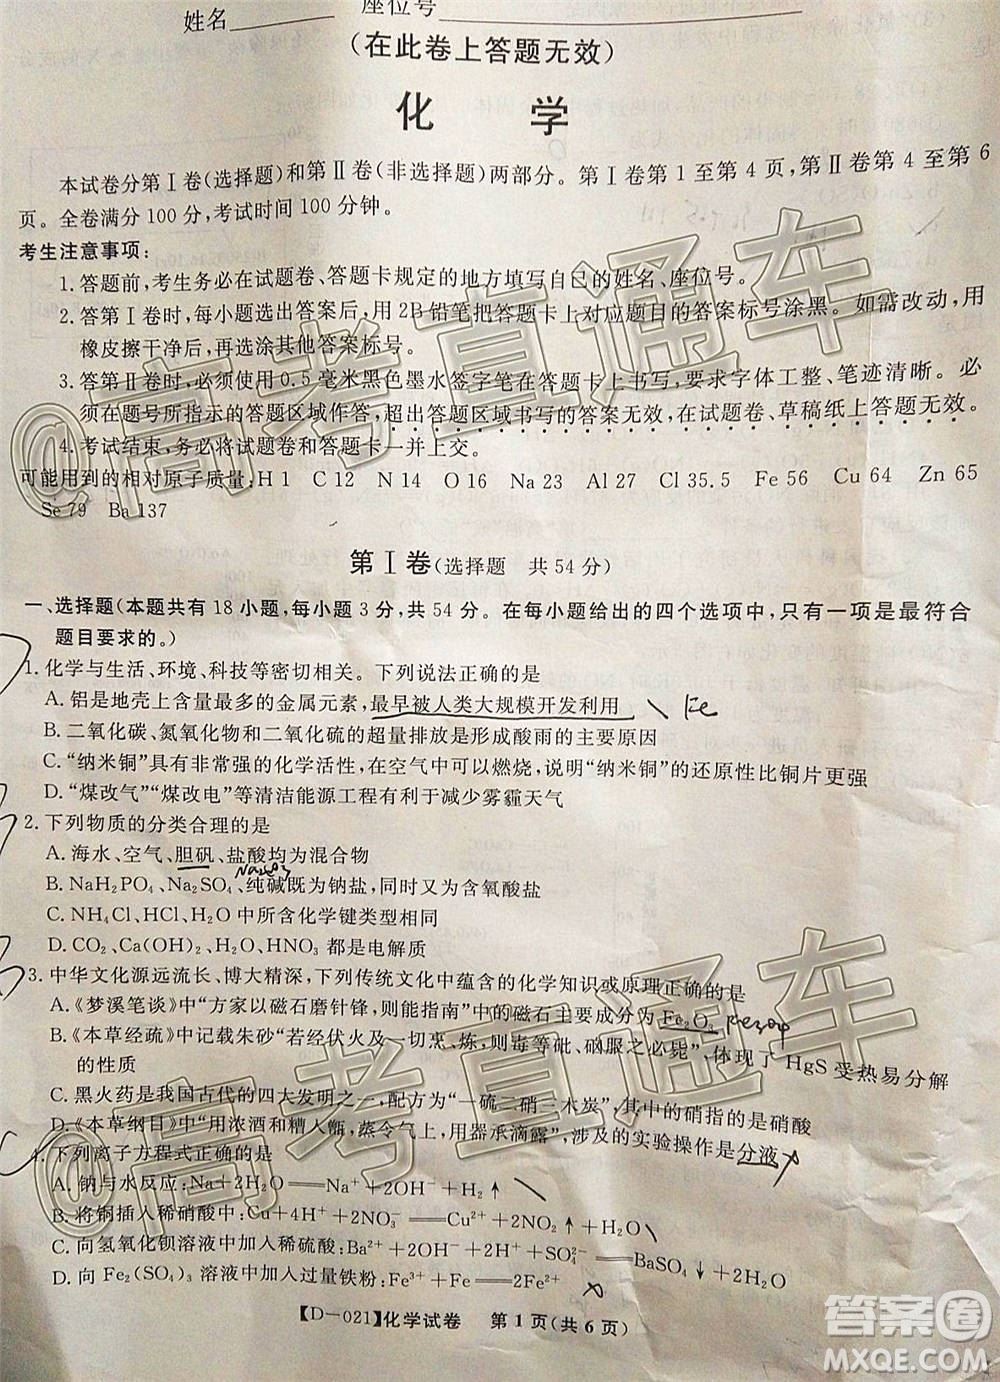 姓名________ 座位号________________
(在此卷上答题无效)
化 学
本试卷分第Ⅰ卷(选择题)和第Ⅱ卷(非选择题)两部分。第Ⅰ卷第 1 至第 4 页,第Ⅱ卷第 4 至第 6
页。全卷满分 100 分,考试时间 100 分钟。
考生注意事项:
1. 答题前,考生务必在试题卷、答题卡规定的地方填写自己的姓名、座位号。
2. 答第Ⅰ卷时,每小题选出答案后,用 2B 铅笔把答题卡上对应题目的答案标号涂黑。如需改动,用
橡皮擦干净后,再选涂其他答案标号。
3. 答第Ⅱ卷时,必须使用 0.5 毫米黑色墨水签字笔在答题卡上书写,要求字体工整、笔迹清晰。必
须在题号所指示的答题区域作答,超出答题区域书写的答案无效,在试题卷、草稿纸上答题无效。
4. 考试结束,务必将试题卷和答题卡一并上交。
可能用到的相对原子质量:H 1 C 12 N 14 O 16 Na 23 Al 27 Cl 35.5 Fe 56 Cu 64 Zn 65
Se 79 Ba 137
第Ⅰ卷(选择题 共 54 分)
一、选择题(本题共有 18 小题,每小题 3 分,共 54 分。在每小题给出的四个选项中,只有一项是最符合
题目要求的。)
1. 化学与生活、环境、科技等密切相关。下列说法正确的是
A. 铝是地壳上含量最多的金属元素,最早被人类大规模开发利用 \ Fe
B. 二氧化碳、氮氧化物和二氧化硫的超量排放是形成酸雨的主要原因
C. “纳米铜”具有非常强的化学活性,在空气中可以燃烧,说明“纳米铜”的还原性比铜片更强
D. “煤改气”“煤改电”等清洁能源工程有利于减少雾霾天气
2. 下列物质的分类合理的是
A. 海水、空气、胆矾、盐酸均为混合物
Na2CO3
B. NaH₂PO₄、Na₂SO₄、纯碱既为钠盐,同时又为含氧酸盐
C. NH₄Cl、HCl、H₂O 中所含化学键类型相同
D. CO₂、Ca(OH)₂、H₂O、HNO₃ 都是电解质
3. 中华文化源远流长、博大精深,下列传统文化中蕴含的化学知识或原理正确的是
A. 《梦溪笔谈》中“方家以磁石磨针锋,则能指南”中的磁石主要成分为 Fe₂O₃
B. 《本草经疏》中记载朱砂“若经伏火及一切烹、炼,则毒等砒、䂪服之必毙”,体现了 HgS 受热易分解
的性质
C. 黑火药是我国古代的四大发明之一,配方“一硫二硝三木炭”,其中的硝指的是硝酸
D. 《本草纲目》“用浓酒和糟入甑,蒸令气上,用器承滴露”,涉及的实验操作是分液 x
4. 下列离子方程式正确的是
A. 钠与水反应:Na+2H₂O══Na⁺+2OH⁻+H₂↑ \
B. 将铜插入稀硝酸中:Cu+4H⁺+2NO₃⁻══Cu²⁺+2NO₂↑+2H₂O \
C. 向氢氧化钡溶液中加入稀硫酸:Ba²⁺+OH⁻+H⁺+SO₄²⁻══BaSO₄↓+H₂O
D. 向 Fe₂(SO₄)₃ 溶液中加入过量铁粉:Fe³⁺+Fe══2Fe²⁺ x
【D-021】化学试卷 第 1 页(共 6 页)
@高考直通车
@高考直通车
答案圈
MXQE.COM